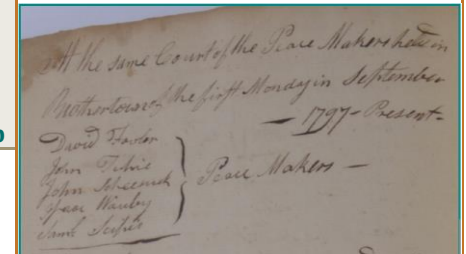 At the same Court of the Peace Makers held in
Brothertown of the first Monday in September
— 1797 — Present —
David Fowler
John Tuhie
John Skeesuck
Isaac Wauby
Saml Scipio
Peace Makers —